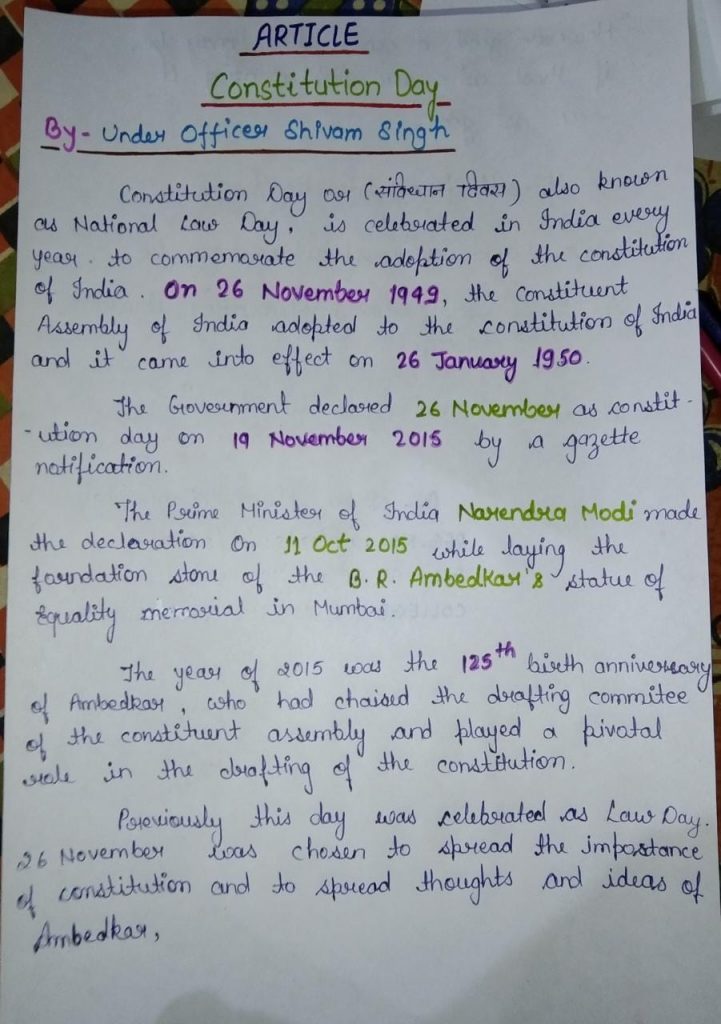 ARTICLE
Constitution Day
By- Under Officer Shivam Singh
Constitution Day or (संविधान दिवस) also known
as National Law Day, is celebrated in India every
year. to commemorate the adoption of the constitution
of India. On 26 November 1949, the constituent
Assembly of India adopted to the constitution of India
and it came into effect on 26 January 1950.
The Government declared 26 November as constit-
-ution day on 19 November 2015 by a gazette
notification.
The Prime Minister of India Narendra Modi made
the declaration On 11 Oct 2015 while laying the
foundation stone of the B.R. Ambedkar's statue of
Equality memorial in Mumbai.
The year of 2015 was the 125th birth anniversary
of Ambedkar, who had chaired the drafting commitee
of the constituent assembly and played a pivotal
role in the drafting of the constitution.
Previously this day was celebrated as Law Day.
26 November was chosen to spread the importance
of constitution and to spread thoughts and ideas of
Ambedkar,